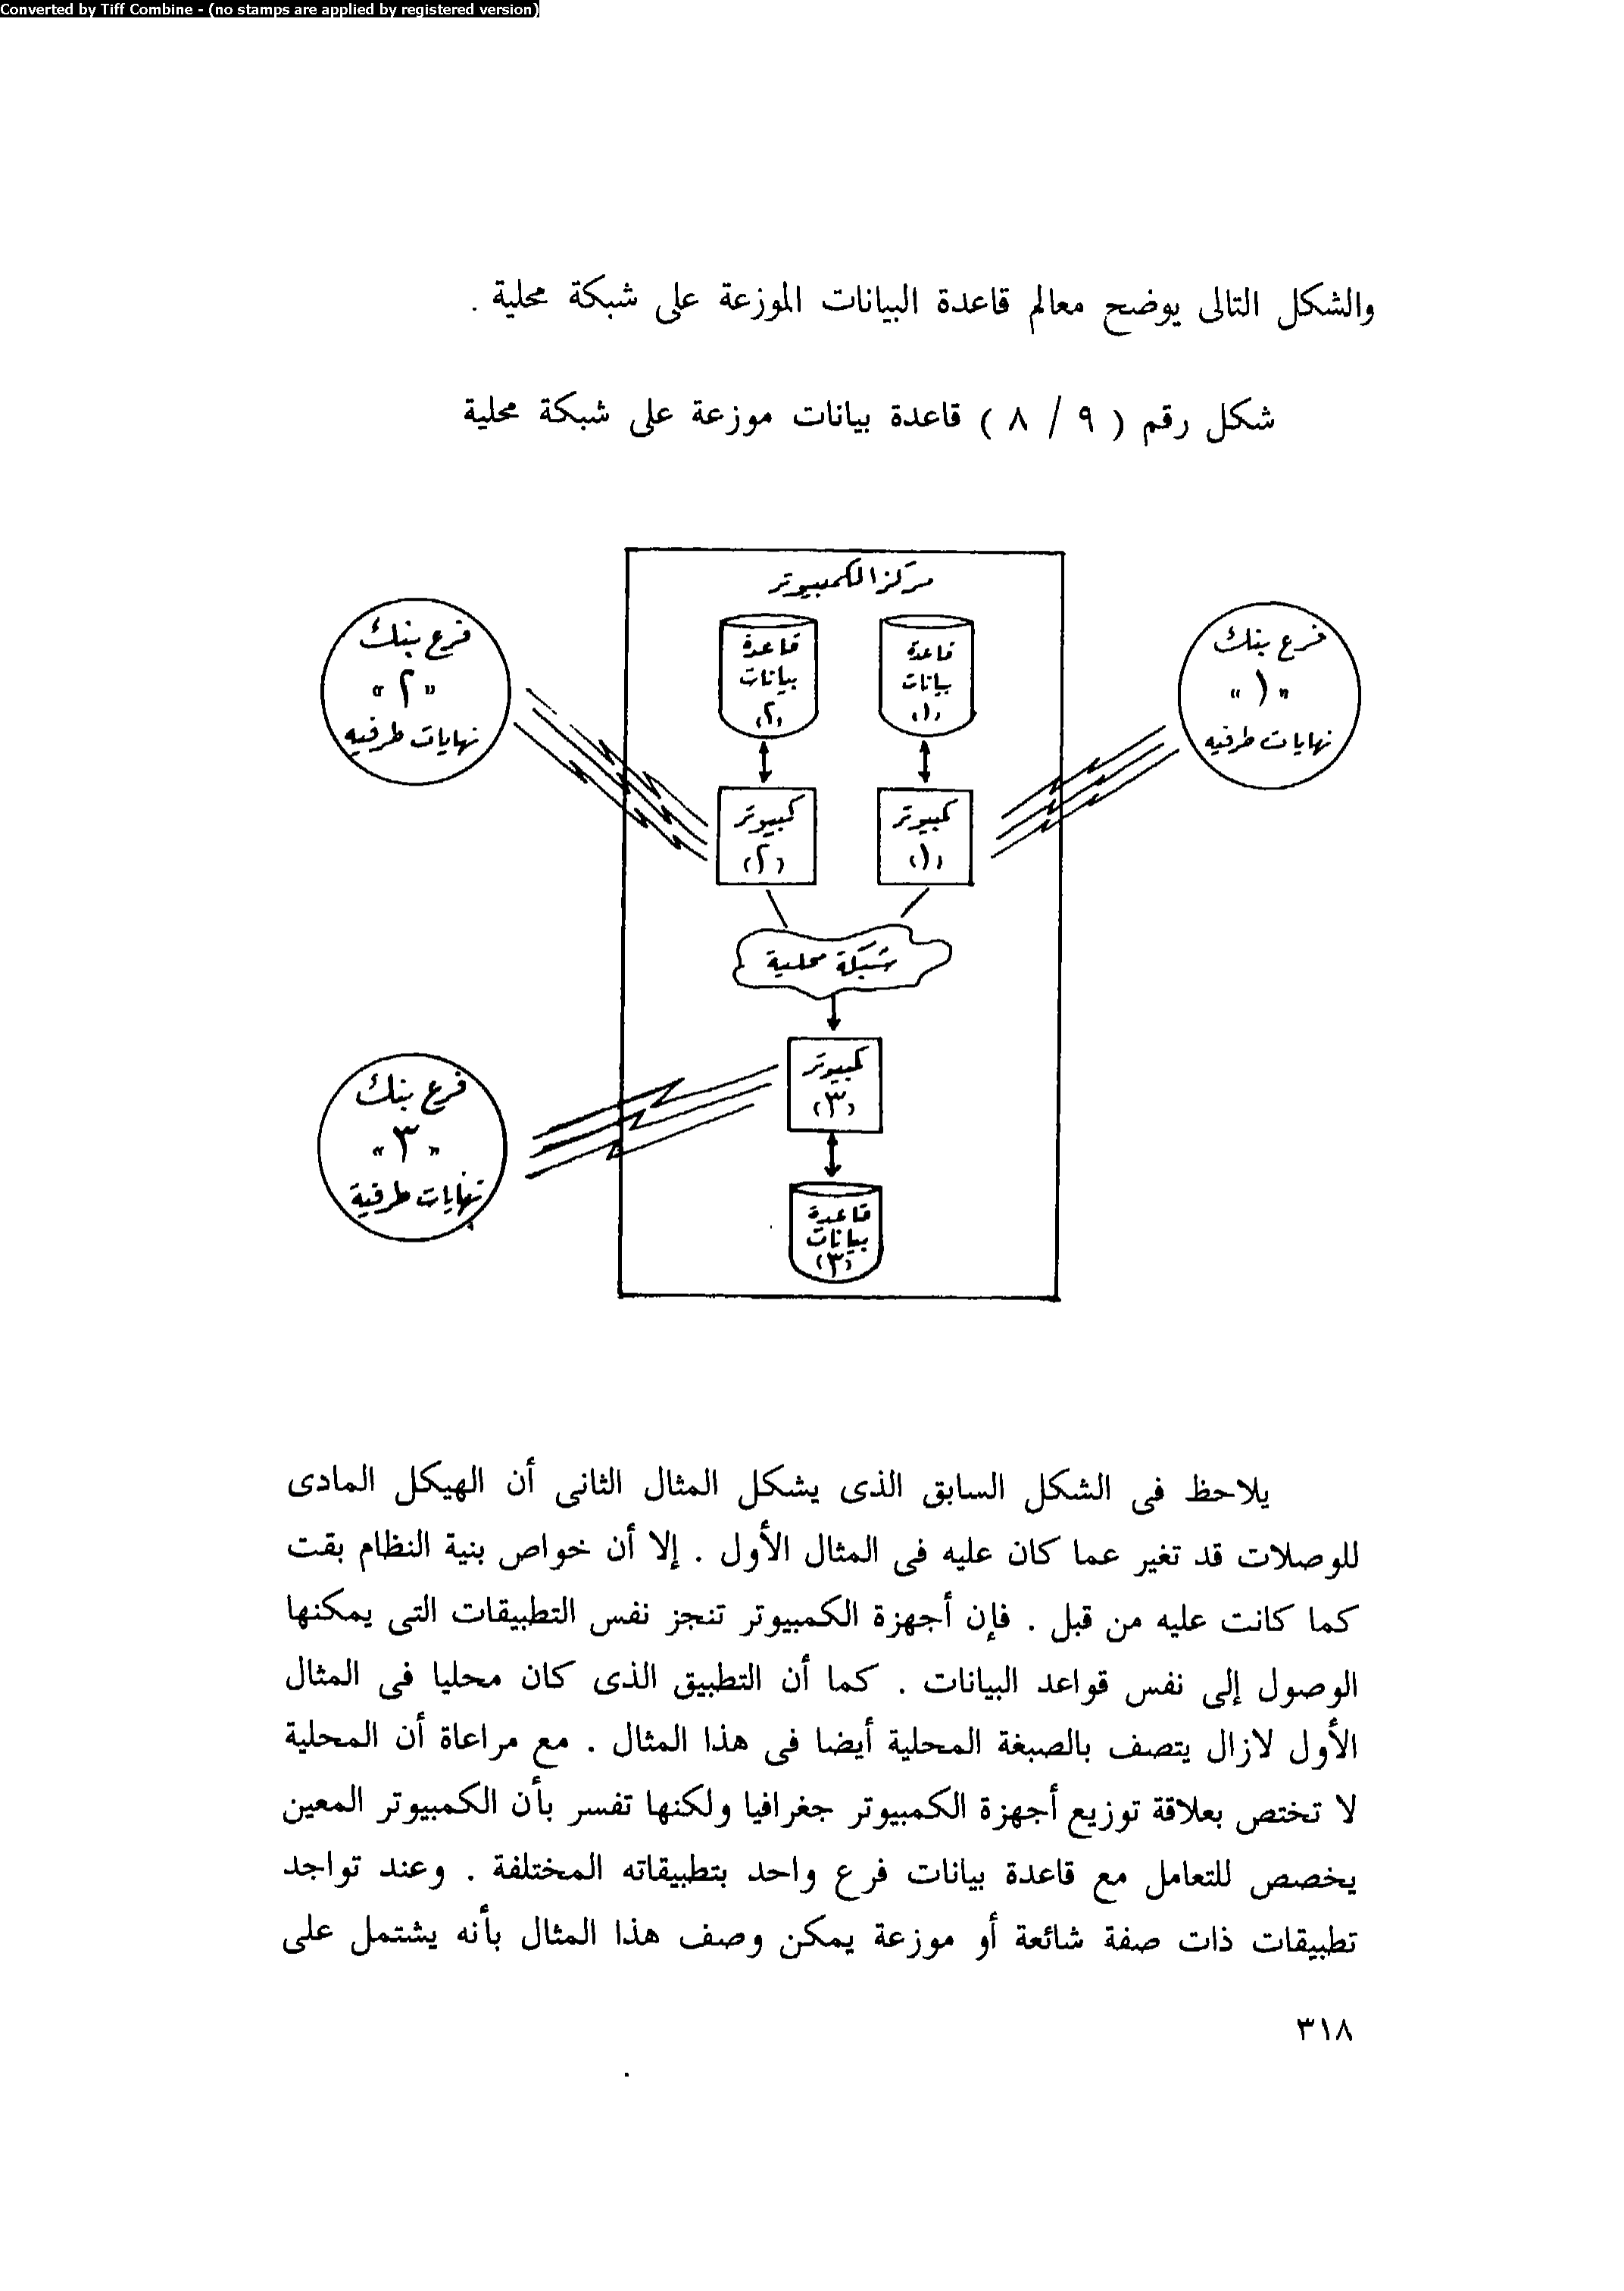 Converted by Tiff Combine - (no stamps are applied by registered version)
والشكل التالى يوضح معالم قاعدة البيانات الموزعة على شبكة محلية .
شكل رقم ( ٩ / ٨ ) قاعدة بيانات موزعة على شبكة محلية
مركز الكمبيوتر
فرع بنك
"١"
نهايات طرفيه
قاعدة
بيانات
(١)
قاعدة
بيانات
(٢)
فرع بنك
"٢"
نهايات طرفيه
كمبيوتر
(١)
كمبيوتر
(٢)
شبكة محلية
كمبيوتر
(٣)
فرع بنك
"٣"
نهايات طرفية
قاعدة
بيانات
(٣)
يلاحظ فى الشكل السابق الذى يشكل المثال الثانى أن الهيكل المادى
للوصلات قد تغير عما كان عليه فى المثال الأول . إلا أن خواص بنية النظام بقت
كما كانت عليه من قبل . فإن أجهزة الكمبيوتر تنجز نفس التطبيقات التى يمكنها
الوصول إلى نفس قواعد البيانات . كما أن التطبيق الذى كان محليا فى المثال
الأول لازال يتصف بالصبغة المحلية أيضا فى هذا المثال . مع مراعاة أن المحلية
لا تختص بعلاقة توزيع أجهزة الكمبيوتر جغرافيا ولكنها تفسر بأن الكمبيوتر المعين
يخصص للتعامل مع قاعدة بيانات فرع واحد بتطبيقاته المختلفة . وعند تواجد
تطبيقات ذات صفة شائعة أو موزعة يمكن وصف هذا المثال بأنه يشتمل على
٣١٨